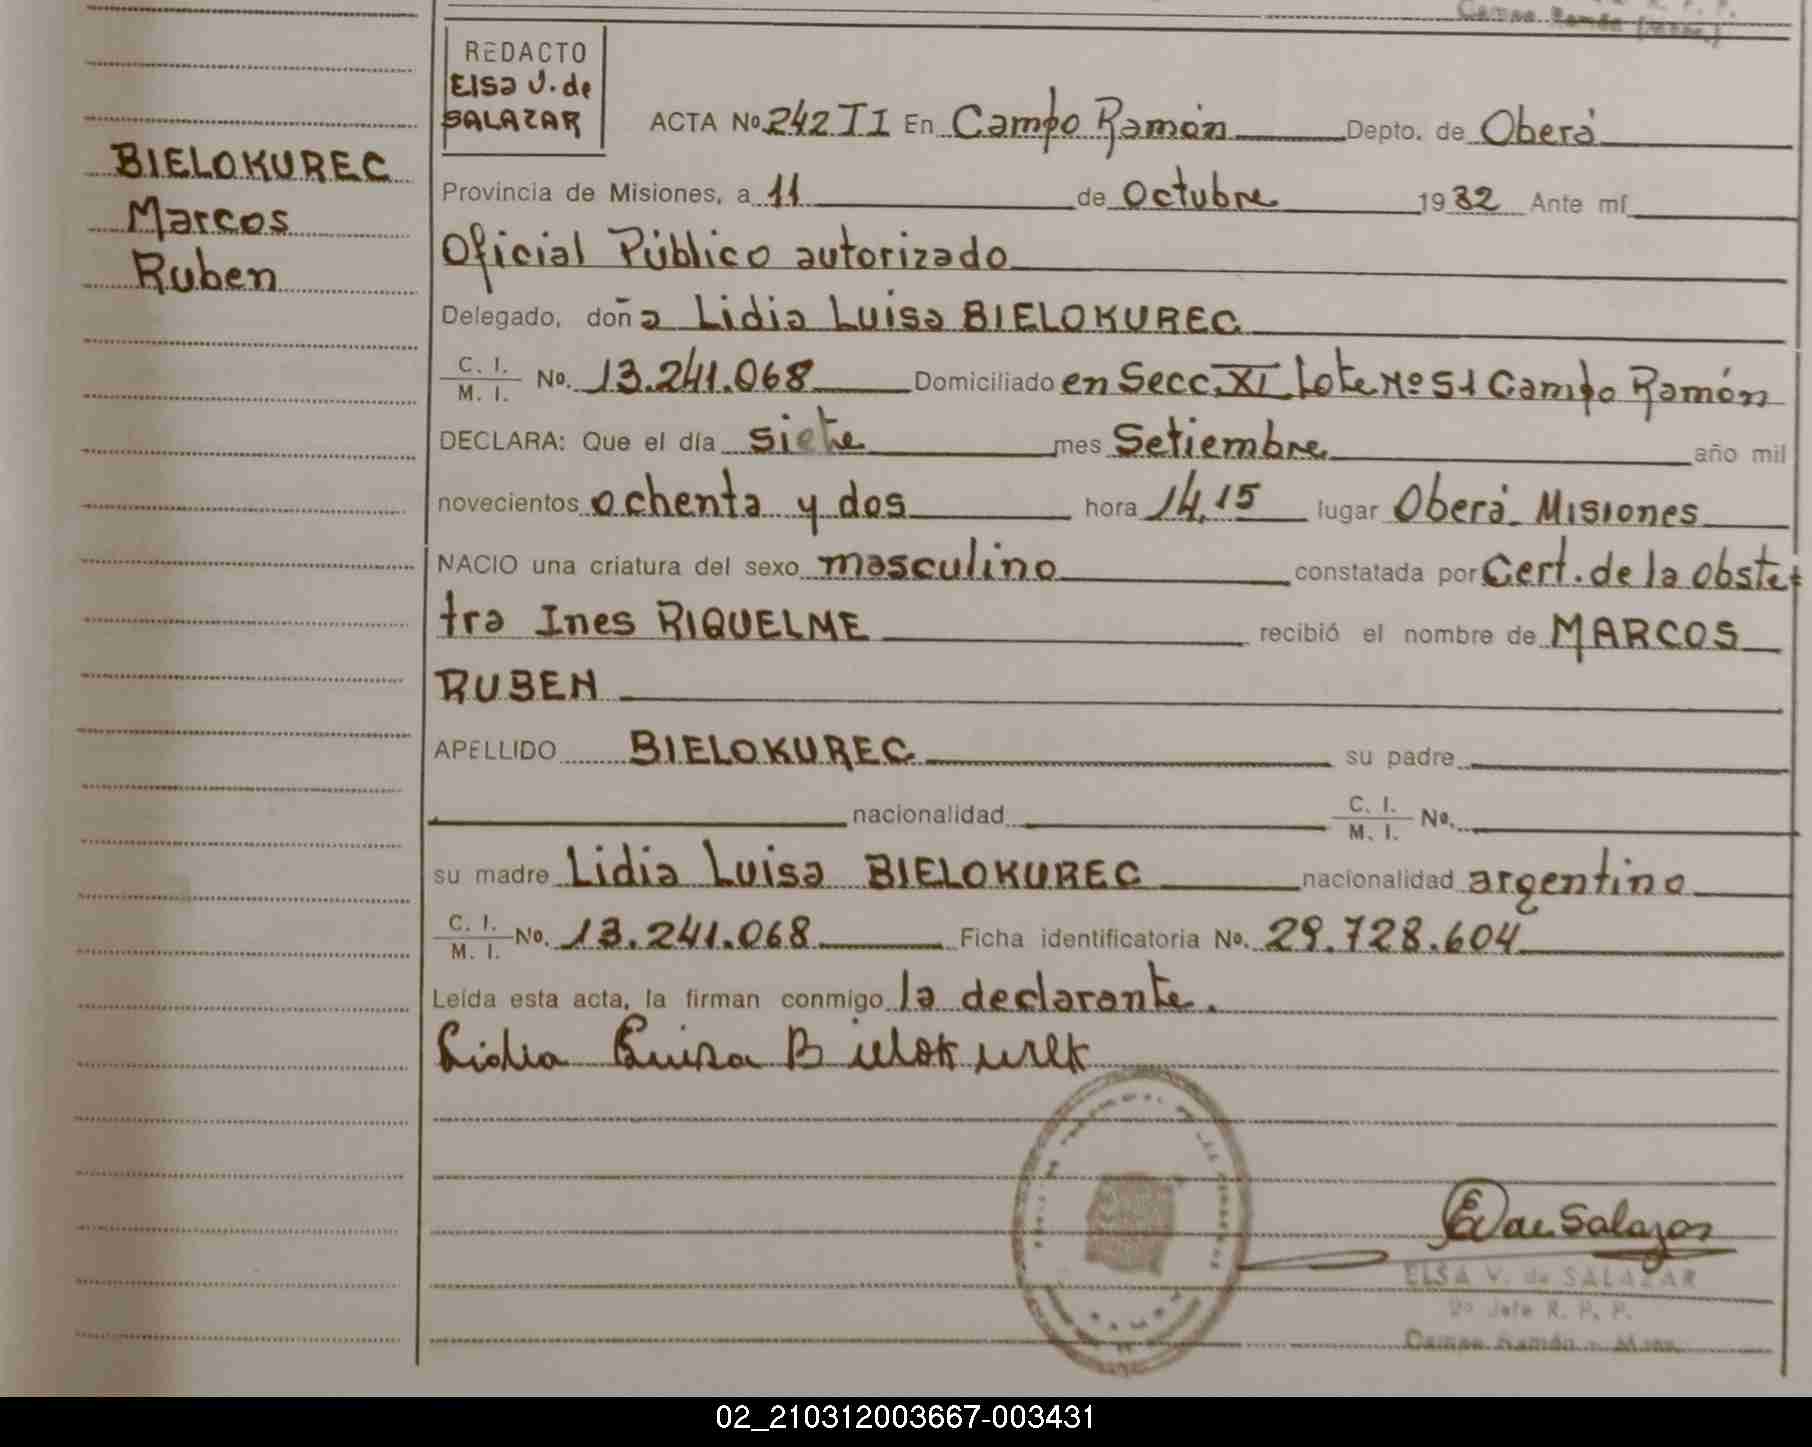 Campo Ramón (Mnes.)
REDACTO
Elsa V. de
SALAZAR
BIELOKUREC
Marcos
Ruben
ACTA No. 242 TI En Campo Ramón Depto. de Oberá
Provincia de Misiones, a 11 de Octubre 1982 Ante mí
Oficial Público autorizado
Delegado, doña Lidia Luisa BIELOKUREC
C. I.
M. I. No. 13.241.068 Domiciliado en Secc. XI Lote Nº 51 Campo Ramón
DECLARA: Que el día siete mes Setiembre año mil
novecientos ochenta y dos hora 14,15 lugar Oberá Misiones
NACIO una criatura del sexo masculino constatada por Cert. de la Obste
tra Ines RIQUELME recibió el nombre de MARCOS
RUBEN
APELLIDO BIELOKUREC su padre
nacionalidad C. I.
M. I. No.
su madre Lidia Luisa BIELOKUREC nacionalidad argentina
C. I.
M. I. No. 13.241.068 Ficha identificatoria No. 29.728.604
Leída esta acta, la firman conmigo la declarante.
Lidia Luisa Bielokurek
EV de Salazar
ELSA V. de SALAZAR
2º Jefe R. P. P.
Campo Ramón - Mnes.
02_210312003667-003431